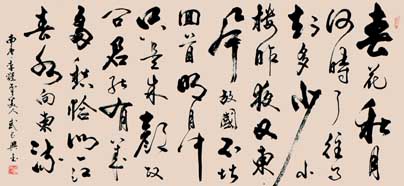 春花秋月
何時了往事
知多少小
樓昨夜又東
風故國不堪
回首明月中
只是朱顏改
問君能有幾
多愁恰似一江
春水向東流
南唐李煜虞美人